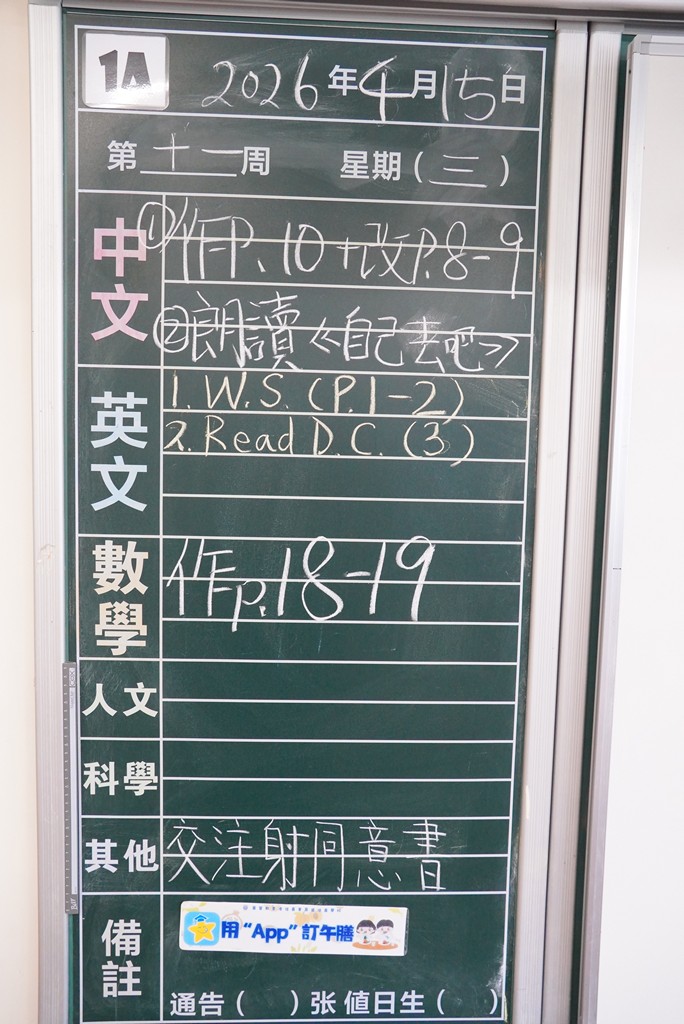 1A 2026年4月15日
第十一周 星期(三)
中文
①作P.10+改P.8-9
②朗讀《自己去吧》
英文
1. W.S. (P.1-2)
2. Read D.C. (3)
數學
作p.18-19
人文
科學
其他
交注射同意書
備註
用“App”訂午膳
通告( )张 值日生( )